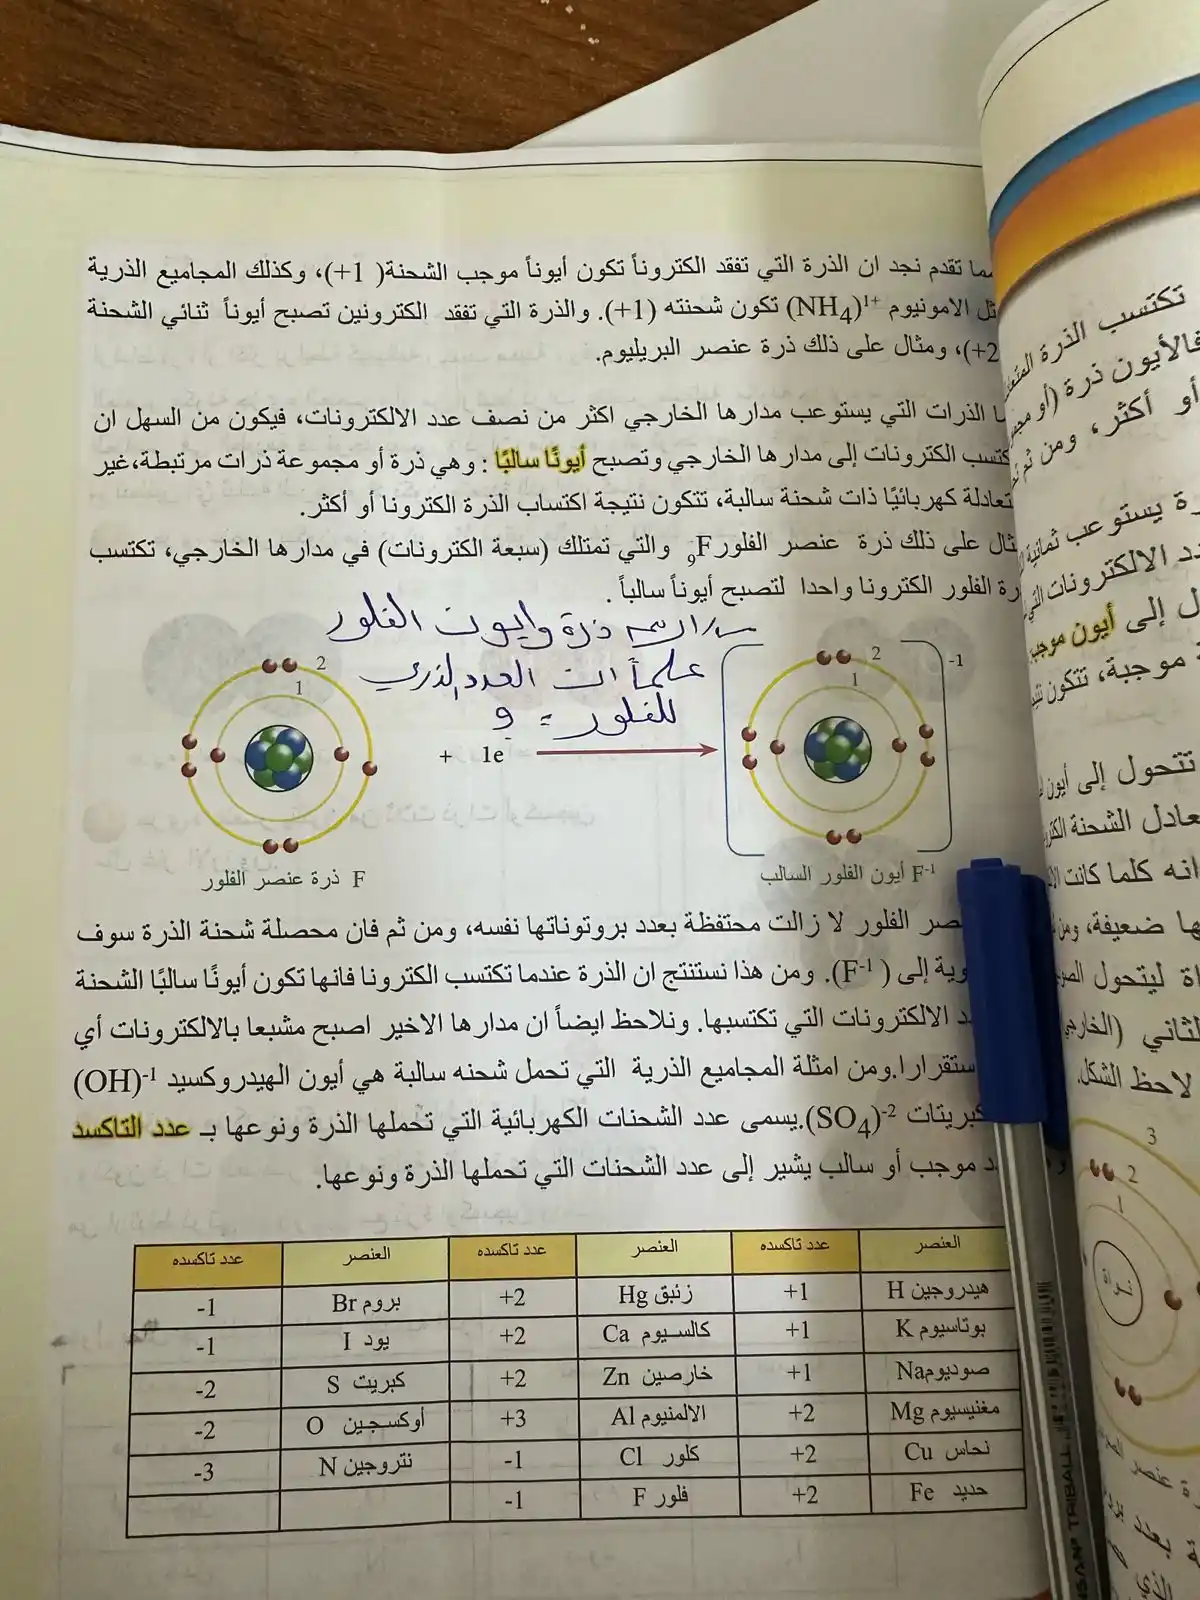 مما تقدم نجد ان الذرة التي تفقد الكتروناً تكون أيوناً موجب الشحنة( 1+)، وكذلك المجاميع الذرية
ثل الامونيوم (NH4)1+ تكون شحنته (1+). والذرة التي تفقد الكترونين تصبح أيوناً ثنائي الشحنة
2+)، ومثال على ذلك ذرة عنصر البريليوم.
ا الذرات التي يستوعب مدارها الخارجي اكثر من نصف عدد الالكترونات، فيكون من السهل ان
كتسب الكترونات إلى مدارها الخارجي وتصبح أيونًا سالبًا : وهي ذرة أو مجموعة ذرات مرتبطة،غير
تعادلة كهربائيًا ذات شحنة سالبة، تتكون نتيجة اكتساب الذرة الكترونا أو أكثر.
ثال على ذلك ذرة عنصر الفلور 9F والتي تمتلك (سبعة الكترونات) في مدارها الخارجي، تكتسب
رة الفلور الكترونا واحدا لتصبح أيوناً سالباً .
س/ ارسم ذرة وايون الفلور
علماً ان العدد الذري
للفلور = 9
2
1
+ 1e
2
1
-1
F ذرة عنصر الفلور
F-1 أيون الفلور السالب
صر الفلور لا زالت محتفظة بعدد بروتوناتها نفسه، ومن ثم فان محصلة شحنة الذرة سوف
وية إلى ( F-1). ومن هذا نستنتج ان الذرة عندما تكتسب الكترونا فانها تكون أيونًا سالبًا الشحنة
د الالكترونات التي تكتسبها. ونلاحظ ايضاً ان مدارها الاخير اصبح مشبعا بالالكترونات أي
ستقرارا.ومن امثلة المجاميع الذرية التي تحمل شحنه سالبة هي أيون الهيدروكسيد (OH)-1
كبريتات (SO4)-2.يسمى عدد الشحنات الكهربائية التي تحملها الذرة ونوعها بـ عدد التاكسد
د موجب أو سالب يشير إلى عدد الشحنات التي تحملها الذرة ونوعها.
العنصر عدد تاكسده العنصر عدد تاكسده العنصر عدد تاكسده
هيدروجين H +1 زئبق Hg +2 بروم Br -1
بوتاسيوم K +1 كالسيوم Ca +2 يود I -1
صوديوم Na +1 خارصين Zn +2 كبريت S -2
مغنيسيوم Mg +2 الالمنيوم Al +3 أوكسجين O -2
نحاس Cu +2 كلور Cl -1 نتروجين N -3
حديد Fe +2 فلور F -1
تكتسب الذرة
فالأيون ذرة (أو
أو أكثر، ومن ثم
رة يستوعب ثمانية
دد الالكترونات التي
ل إلى أيون موجب
موجبة، تتكون
تتحول إلى أيون
عادل الشحنة
انه كلما كانت
ها ضعيفة،
اة ليتحول
لثاني (الخارجي
لاحظ الشكل.
3
2
1
TRIBALL